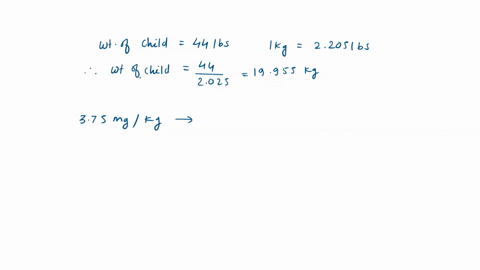 wt. of child = 44 lbs 1 kg = 2.205 lbs
∴ wt of child = 44/2.025 = 19.955 kg
3.75 mg / kg →